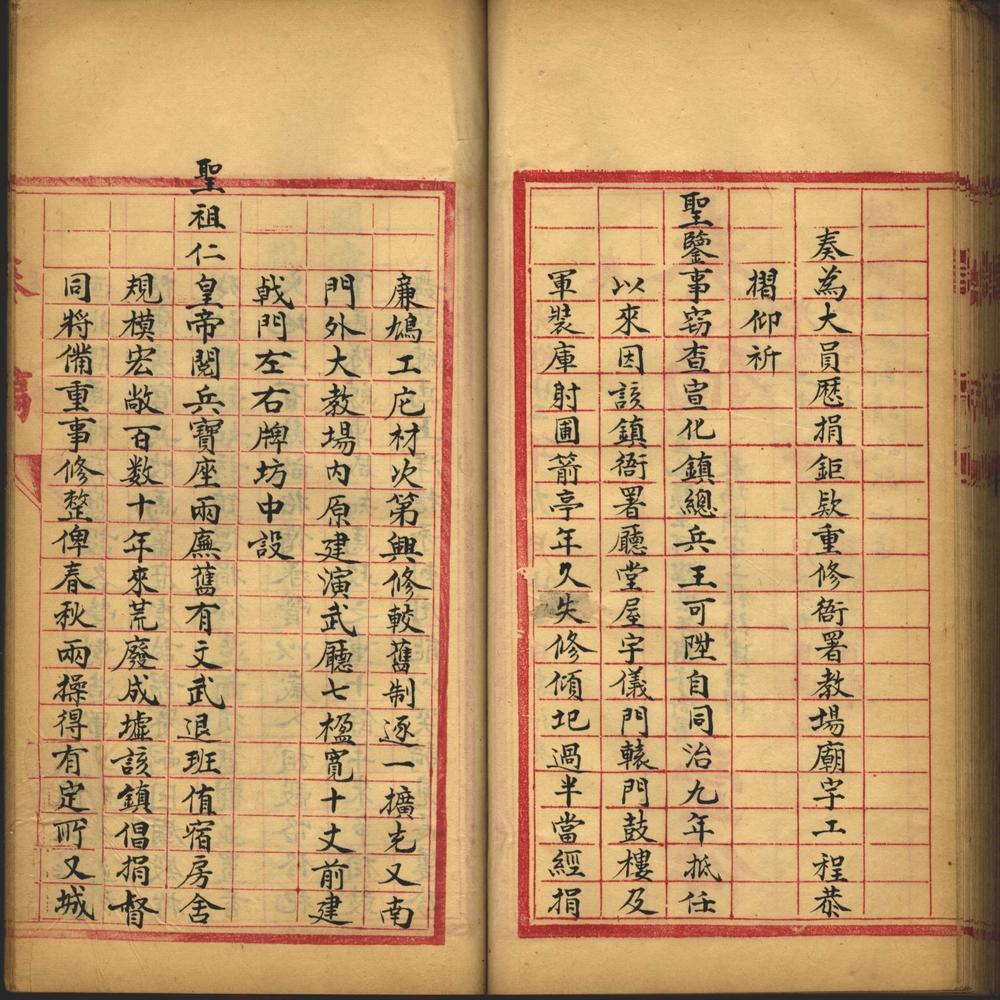 奏為大員歷捐鉅欵重修衙署教場廟宇工程恭
摺仰祈
聖鑒事竊查宣化鎮總兵王可陞自同治九年抵任
以來因該鎮衙署廳堂屋宇儀門轅門鼓樓及
軍裝庫射圃箭亭年久失修傾圮過半當經捐
廉鳩工庀材次第興修較舊制逐一擴充又南
門外大教場內原建演武廳七楹寬十丈前建
戟門左右牌坊中設
聖祖仁皇帝閱兵寶座兩廡舊有文武退班值宿房舍
規模宏敞百數十年來荒廢成墟該鎮倡捐督
同將備重事修整俾春秋兩操得有定所又城